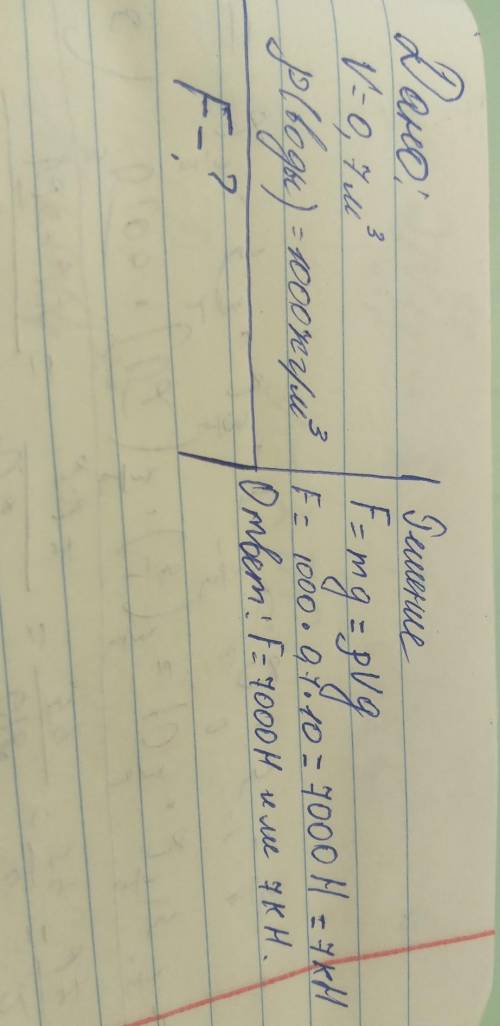 Дано:
V = 0,7 м³
ρ(воды) = 1000 кг/м³
F - ?
Решение
F = mg = ρVg
F = 1000 · 0,7 · 10 = 7000 Н = 7 кН
Ответ: F = 7000 Н или 7 кН.